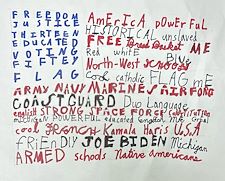 FREEDOM
JUSTICE
THIRTEEN
EDUCATED
VOTING
FIFTEY
FLAG
AMERICA POWERFUL
HISTORICAL unslaved
FREE Bread Basket ME
Red white BLUE
North-West SCHOOLS
Cool catholic FLAG me
ARMY NAVY MARINES AIRFORCE
COASTGUARD Duo Language
english STRONG SPACE FORCE CONSTITUTION
POWERFUL educated
cool FRENCH Kamala Haris U.S.A
FRIENDLY JOE BIDEN Michigan
ARMED schools Native Americans